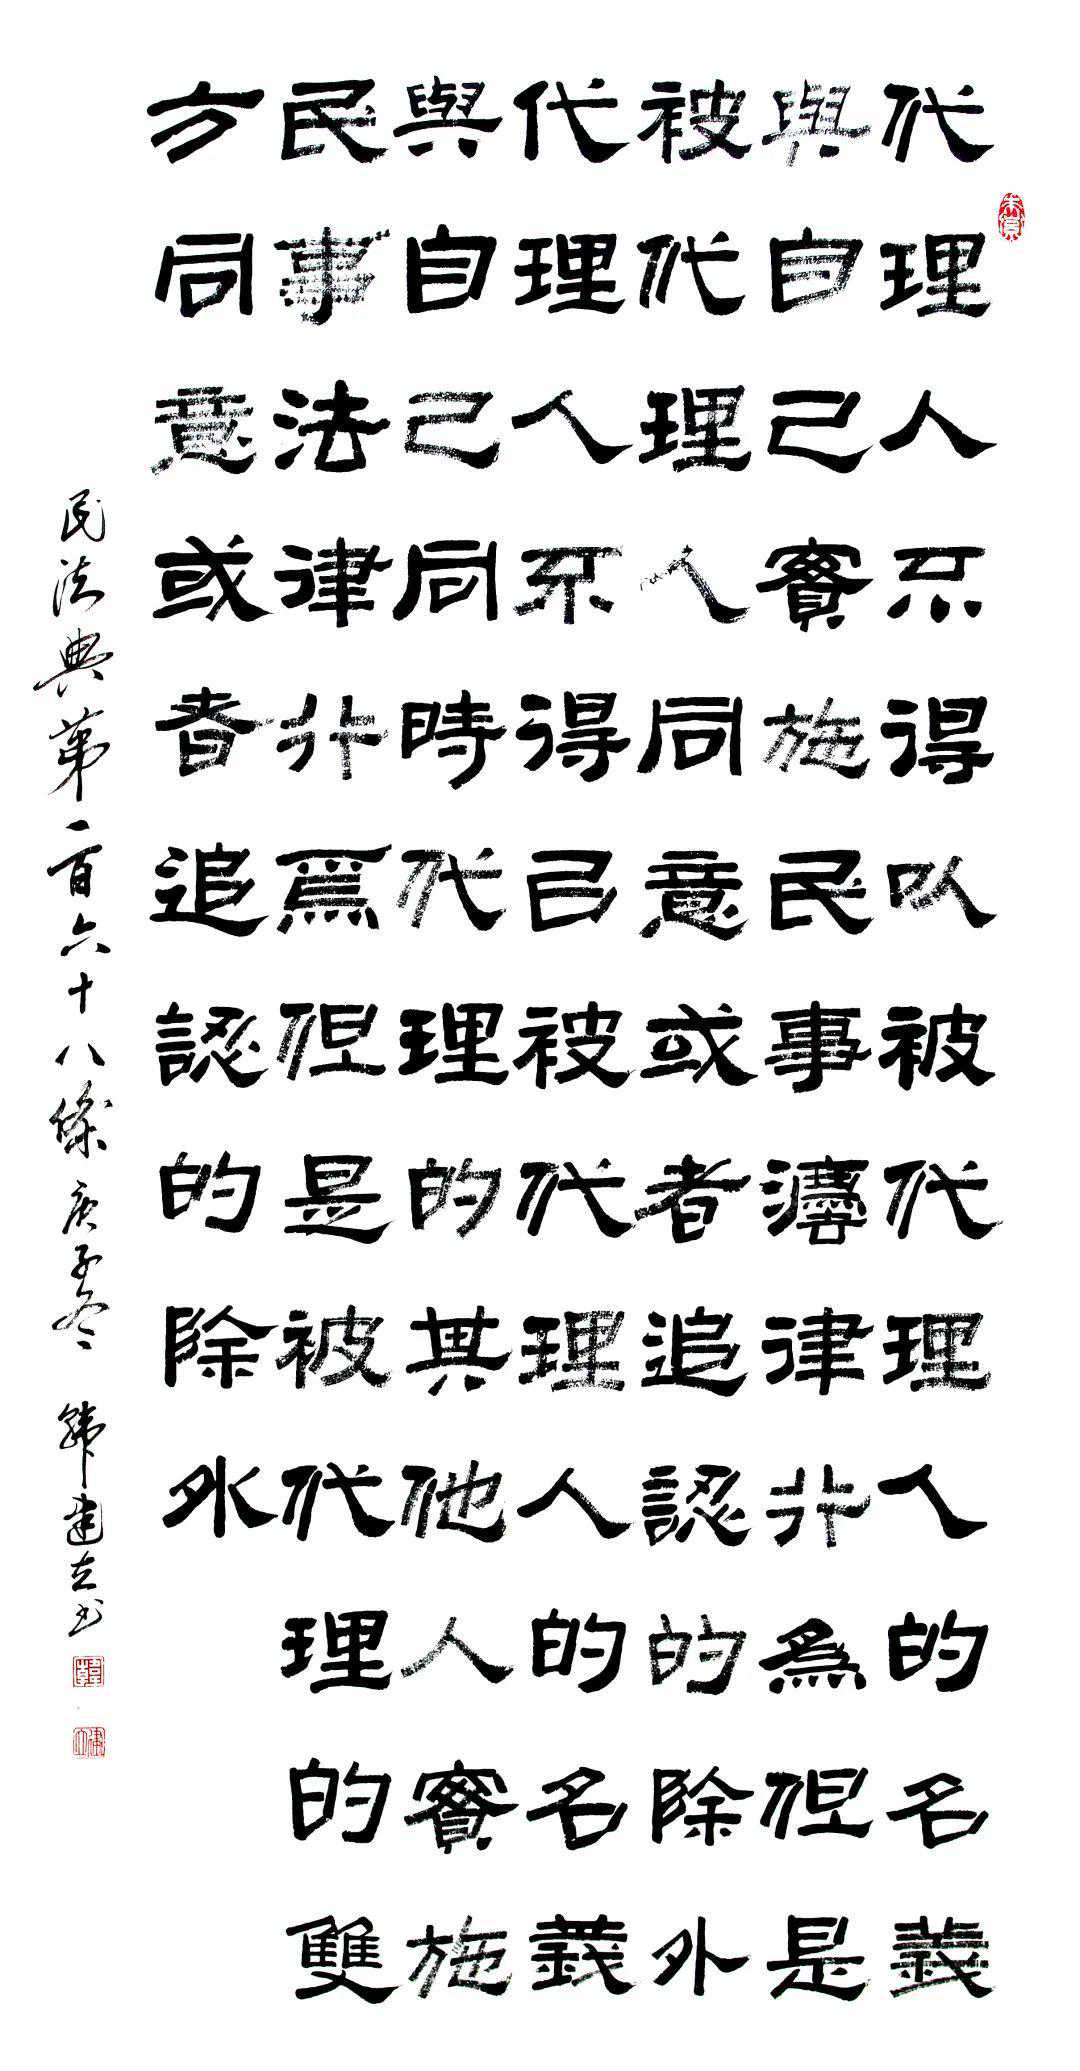 代理人不得以被代理人的名義
與自己實施民事灋律行為但是
被代理人同意或者追認的除外
代理人不得㠯被代理人的名義
與自己同時代理的其他人實施
民事法律行爲但是被代理的雙
方同意或者追認的除外
民法典第一百六十八條 庚子冬 韓建立书